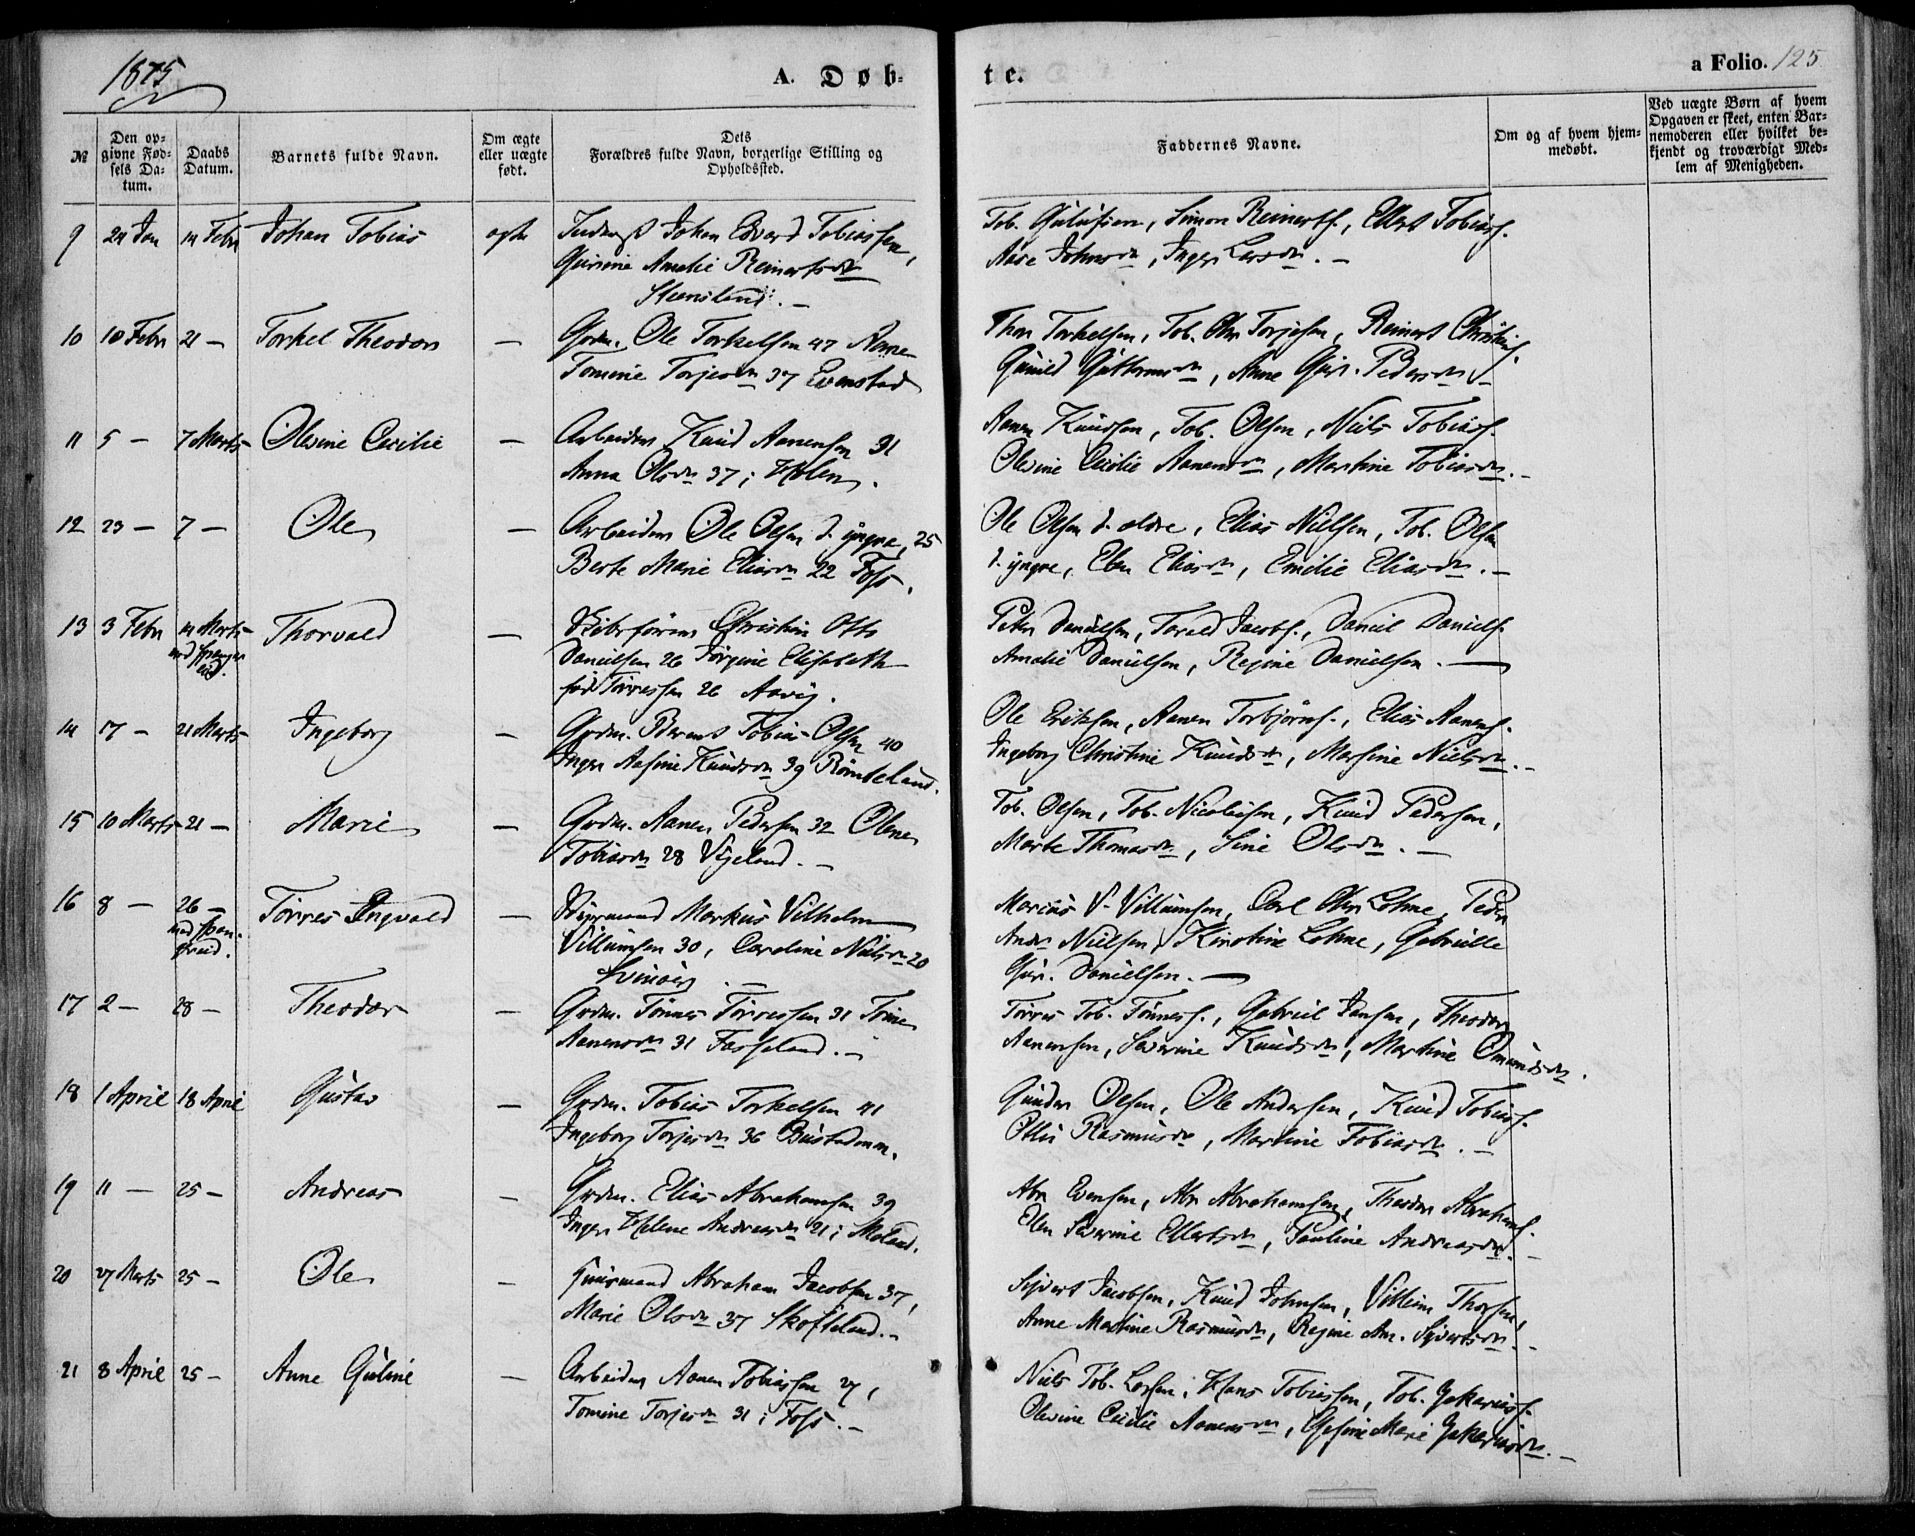 1875
A. Døb-
te.
a Folio. 125
№
Den op-
givne Fød-
sels Da-
tum.
Daabs
Datum.
Barnets fulde Navn.
Om ægte
eller uægte
født.
Dets
Forældres fulde Navn, borgerlige Stilling og
Opholdssted.
Faddernes Navne.
Om og af hvem hjem-
medøbt.
Ved uægte Børn af hvem
Opgaven er skeet, enten Bar-
nemoderen eller hvilket be-
kjendt og troværdigt Med-
lem af Menigheden.
9 24 Jan 14 Febr Johan Tobias ægte Johan Edvard Tobiassen,
Amalie Reinertsdtr
Steensland. —
Tob. Simon Reinerts., Ellert Tobias.
Aase Johnsdtr, Inger Larsdtr. —
10 10 Febr 21 — Torkel Theodor — Grdm. Ole Torkelsen 47
Tomine Torjesdtr 37 Evenstad
Thor Torkelsen, Tob. Chr Torjesen, Reinert Christens.
Gunild Guttormsdtr, Anne Gur. Pedersdtr. —
11 5 — 7 Marts Olevine Cecilie — Arbeider Knud Aanensen 31
Anna Olsdtr 37 i Holen.
Aanen Knudsen, Tob. Olsen, Niels Tobias.
Olevine Cecilie Aanensdtr, Martine Tobiasdtr. —
12 23 — 7 — Ole — Arbeider Ole Olsen d. yngre, 25
Berte Marie Eliasdtr 22 Foss.
Ole Olsen d. ældre, Elias Nielsen, Tob. Olsen
d. yngre, Elen Eliasdtr, Emilie Eliasdtr. —
13 3 Febr 14 Marts Thorvald — Skibsfører Christian Otto
Danielsen 26 Jørgine Elisabeth
født Tørressen 26 Aavig.
Peter Danielsen, Torald Jacobs., Daniel Daniels.
Amalie Danielsen, Regine Danielsen. —
14 17 — 21 Marts Ingeborg — Grdm. Berent Tobias Olsen 40
Inger Aasine Knudsdtr 39 Rømteland.
Ole Eriksen, Aanen Torbjørns., Elias Aanens.
Ingeborg Christine Knudsdtr, Martine Nielsdtr. —
15 10 Marts 21 — Marie — Grdm. Aanen Pedersen 32 Olene
Tobiasdtr 28 Vigeland. —
Tob. Olsen, Tob. Nicolaisen, Knud Pedersen,
Marte Thomasdtr, Sine Olsdtr. —
16 8 — 26 — Tørres Ingvald — Markus Vilhelm
Villumsen 30, Caroline Nielsdtr 20
Svinør. —
Marcus V. Villumsen, Carl Chr Lohne, Peder
Andr Nielsen, Kirstine Lohne, Gabrielle
Gur. Danielsen. —
17 2 — 28 — Theodor — Grdm. Tønnes Tørressen 31 Trine
Aanensdtr 31 Fasseland. —
Tørres Tob. Tønnes., Gabriel Jansen, Theodor
Aanensen, Severine Knudsdtr, Martine Omundsdtr.
18 1 April 18 April Gustav — Grdm. Tobias Torkelsen 41
Ingeborg Torjesdtr 36 Bustadmoen.
Gunder Olsen, Ole Andersen, Knud Tobias.
Rasmusdtr, Martine Tobiasdtr. —
19 11 — 25 — Andreas — Grdm. Elias Abrahamsen 39
Inger Helene Andreasdtr 21 i Møland.
Abr Evensen, Abr Abrahamsen, Theodor Abrahams.
Elen Severine Ellertsdtr, Pauline Andreasdtr. —
20 27 Marts 25 — Ole — Huusmand Abraham Jacobsen 37,
Marie Olsdtr 37 Skofteland. —
Sivert Jacobsen, Knud Johnsen, Villum Thorsen,
Anne Martine Rasmusdtr, Regine Am. Sivertsdtr. —
21 8 April 25 — Anne Guline — Arbeider Aanen Tobiassen 27,
Tomine Torjesdtr 31 i Foss. —
Niels Tob. Larsen, Hans Tobiassen, Tob. Zakarias.
Olevine Cecilie Aanensdtr, Gesine Marie Zakariasdtr. —